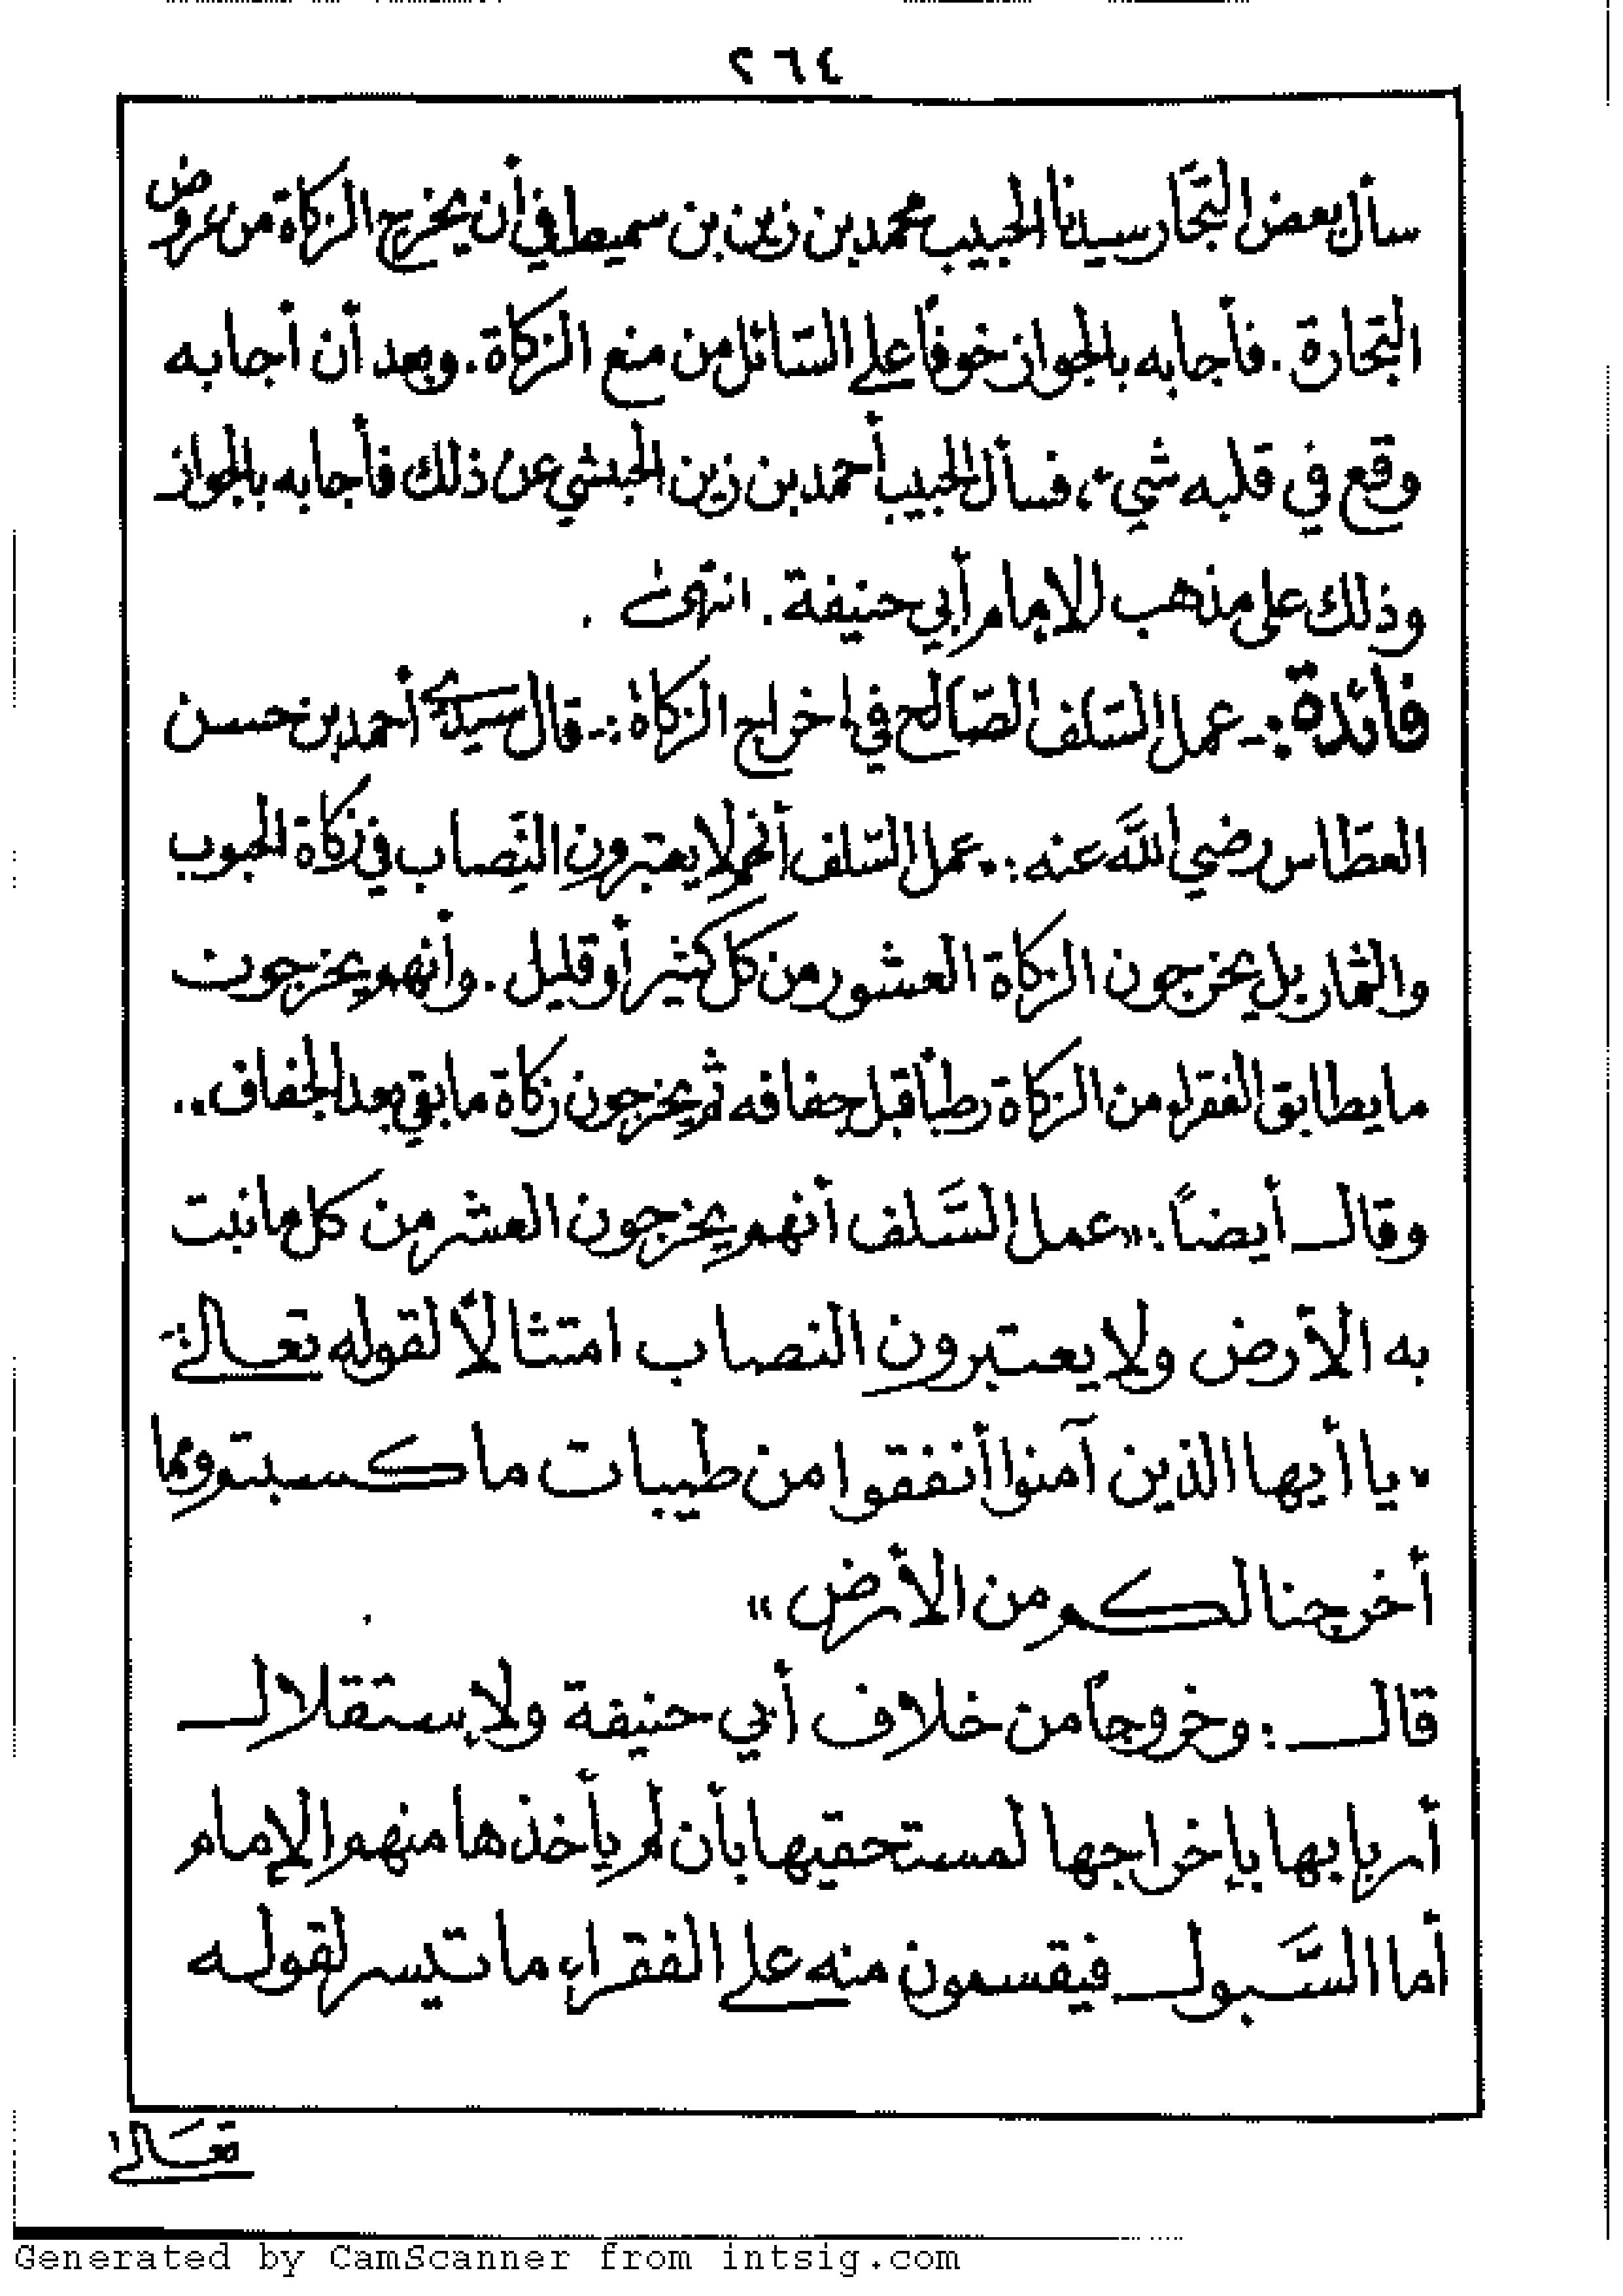 ٢٦٤
سأل بعض التجَّار سيدنا الحبيب محمد بن زين بن سميط في أن يخرج الزكاة من عروض
التجارة . فأجابه بالجواز خوفًا على السّائل من منع الزكاة . وبعد أن أجابه
وقع في قلبه شيء ، فسأل الحبيب أحمد بن زين الحبشي عن ذلك فأجابه بالجواز
وذلك على مذهب الإمام أبي حنيفة . انتهى .
فائدة :- عمل السّلف الصّالح في إخراج الزكاة :- قال سيدي أحمد بن حسن
العطّاس رضي اللَّه عنه : " عمل السّلف أنهم لا يعتبرون النّصاب في زكاة الحبوب
والثمار بل يخرجون الزكاة العشور من كل كثير أو قليل . وأنهم يخرجون
ما يطابق الفقراء من الزكاة رطبًا قبل جفافه ثم يخرجون زكاة ما بقي بعد الجفاف " .
وقال أيضاً : " عمل السَّلف أنهم يخرجون العشر من كل ما نبت
به الأرض ولا يعتبرون النصاب امتثالاً لقوله تعالى
" يا أيها الذين آمنوا أنفقوا من طيبات ما كسبتم ومما
أخرجنا لكم من الأرض "
قال : وخروجاً من خلاف أبي حنيفة ولاستقلال
أربابها بإخراجها لمستحقيها بأن لم يأخذها منهم الإمام
أما السَّبول فيقسمون منه على الفقراء ما تيسر لقوله
تعالى
Generated by CamScanner from intsig.com